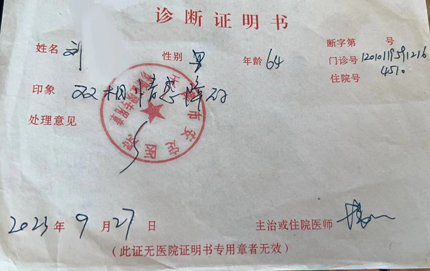 诊断证明书
断字第 号
姓名 刘 性别 男 年龄 64 门诊号
住院号
印象 双相情感障碍
处理意见
2023 年 9 月 27 日 主治或住院医师
(此证无医院证明书专用章者无效)
市安定医